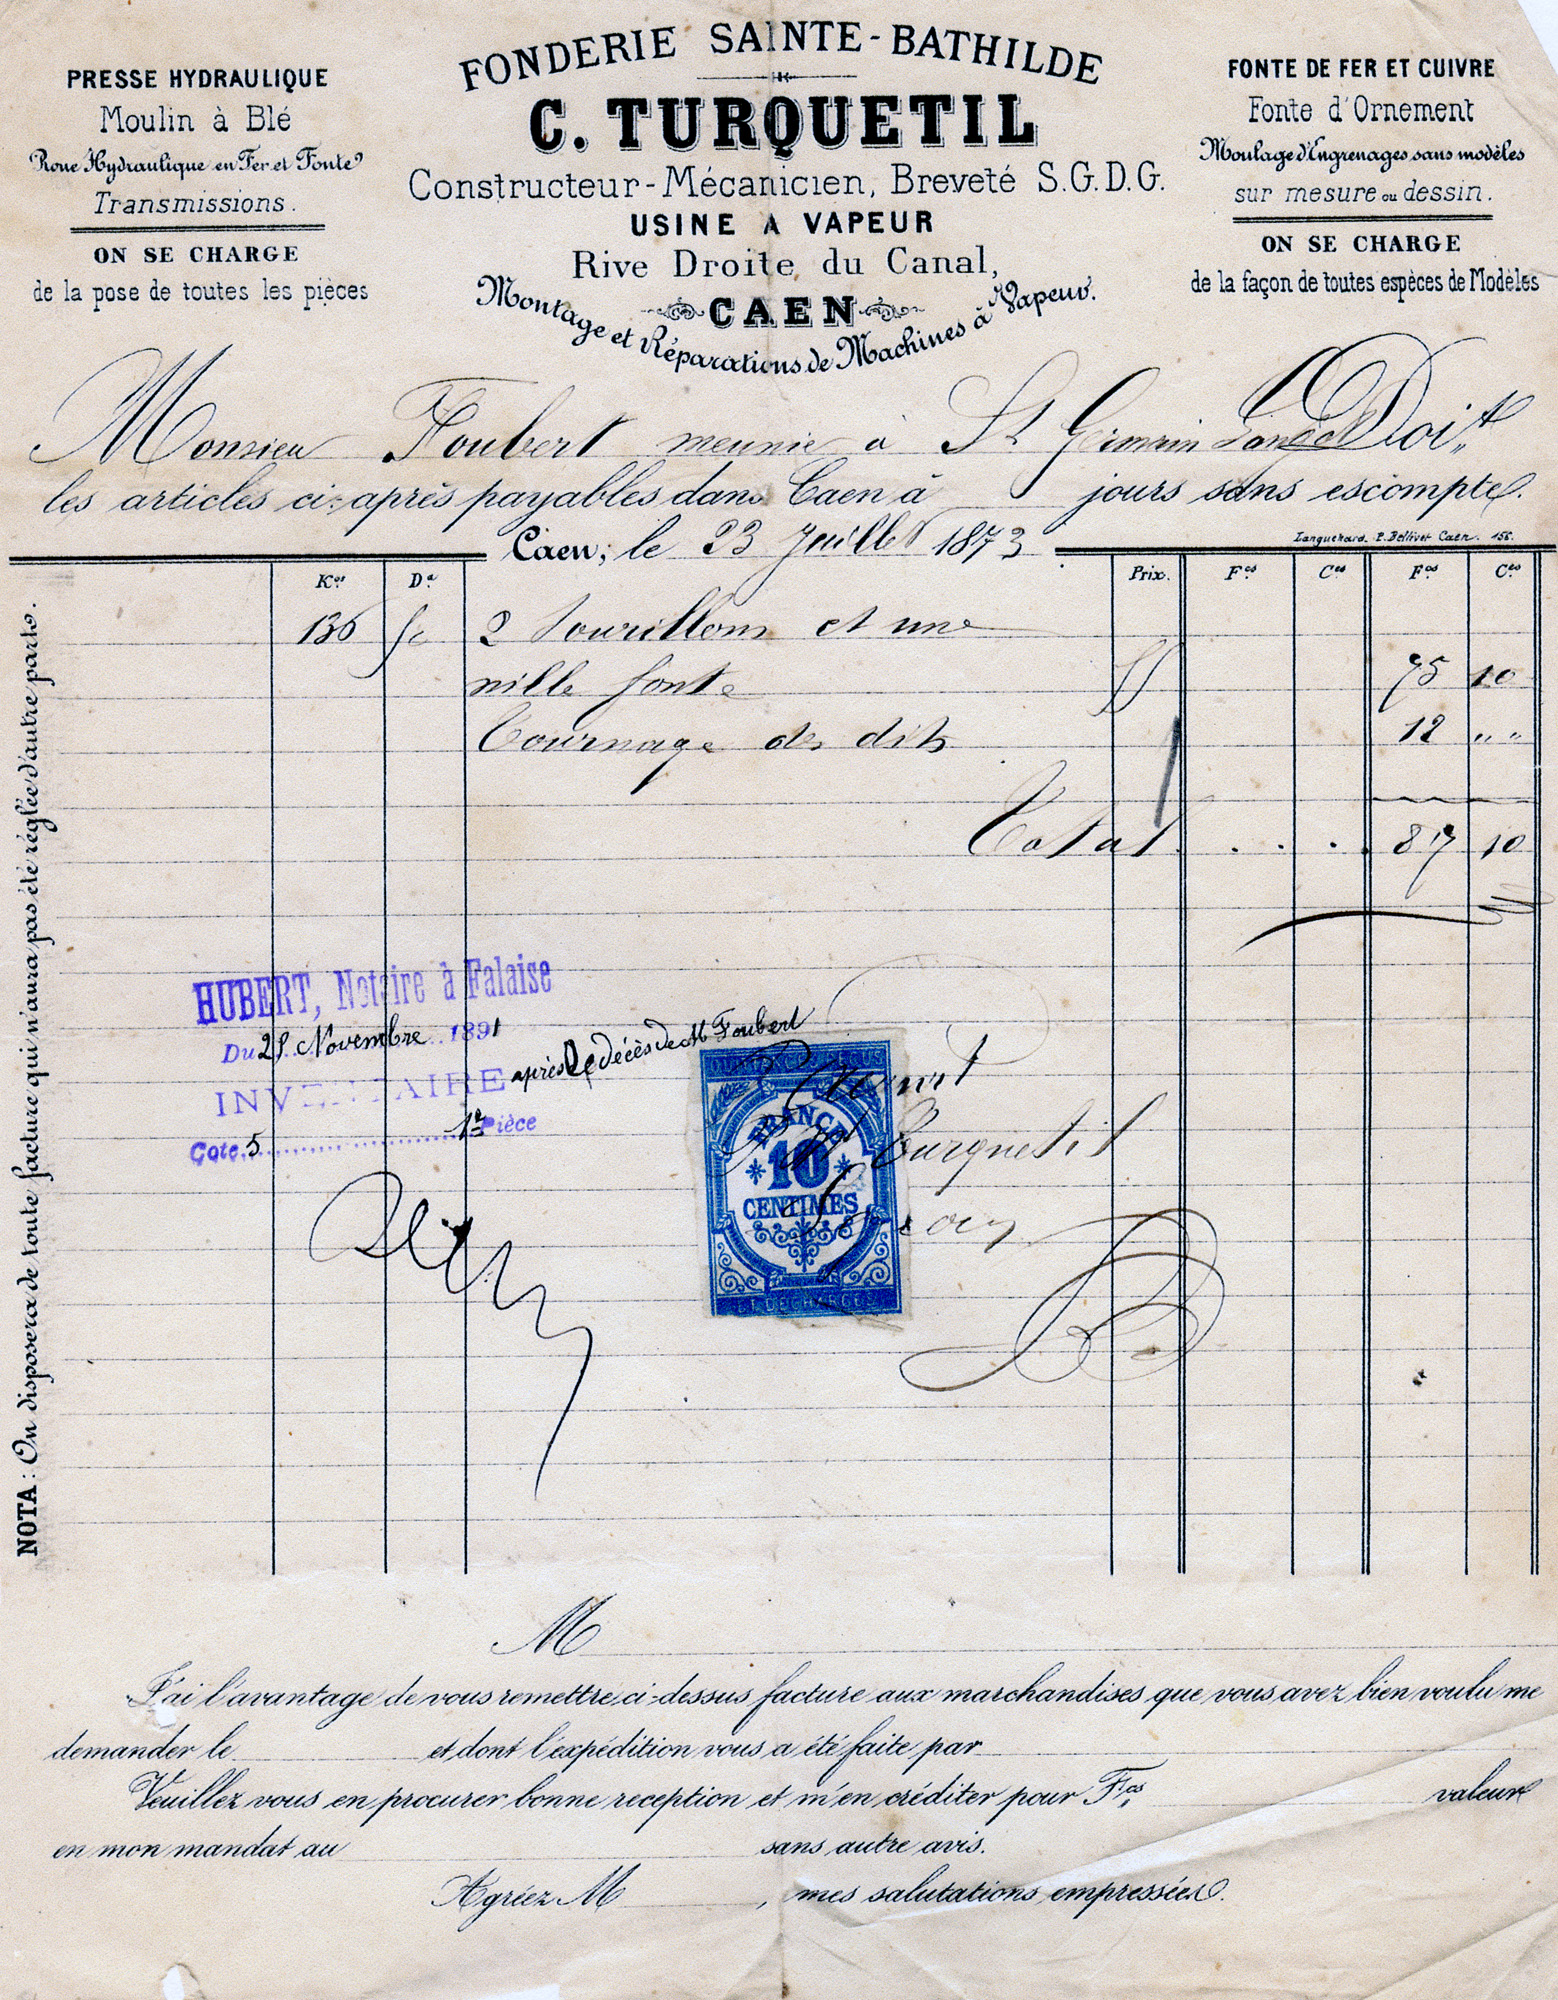 FONDERIE SAINTE-BATHILDE
C. TURQUETIL
Constructeur-Mécanicien, Breveté S.G.D.G.
USINE A VAPEUR
Rive Droite du Canal,
CAEN
Montage et Réparations de Machines à Vapeur.
PRESSE HYDRAULIQUE
Moulin à Blé
Roue Hydraulique en Fer et Fonte
Transmissions.
ON SE CHARGE
de la pose de toutes les pièces
FONTE DE FER ET CUIVRE
Fonte d'Ornement
Moulage d'Engrenages sans modèles
sur mesure ou dessin.
ON SE CHARGE
de la façon de toutes espèces de Modèles
Monsieur Foubert meunier à St Germain Langot Doit
les articles ci-après payables dans Caen à jours sans escompte.
Caen, le 23 Juillet 1873
Languehard. P. Bellivet Caen. 156.
Kos Dn Prix. Fcs Ces Fcs Ces
136 2 tourillons et une
nille fonte 75 10
Tournage des dits 12 " "
Total . . . . 87 10
HUBERT, Notaire à Falaise
Du 25 Novembre 1891
INVENTAIRE après le décès de M Foubert
Cote 5 1re Pièce
FRANCE
10
CENTIMES
Turquetil
NOTA : On disposera de toute facture qui n'aura pas été réglée d'autre part.
M
J'ai l'avantage de vous remettre ci-dessus facture aux marchandises que vous avez bien voulu me
demander le et dont l'expédition vous a été faite par
Veuillez vous en procurer bonne reception et m'en créditer pour Fcs valeur
en mon mandat au sans autre avis.
Agréez M , mes salutations empressées.